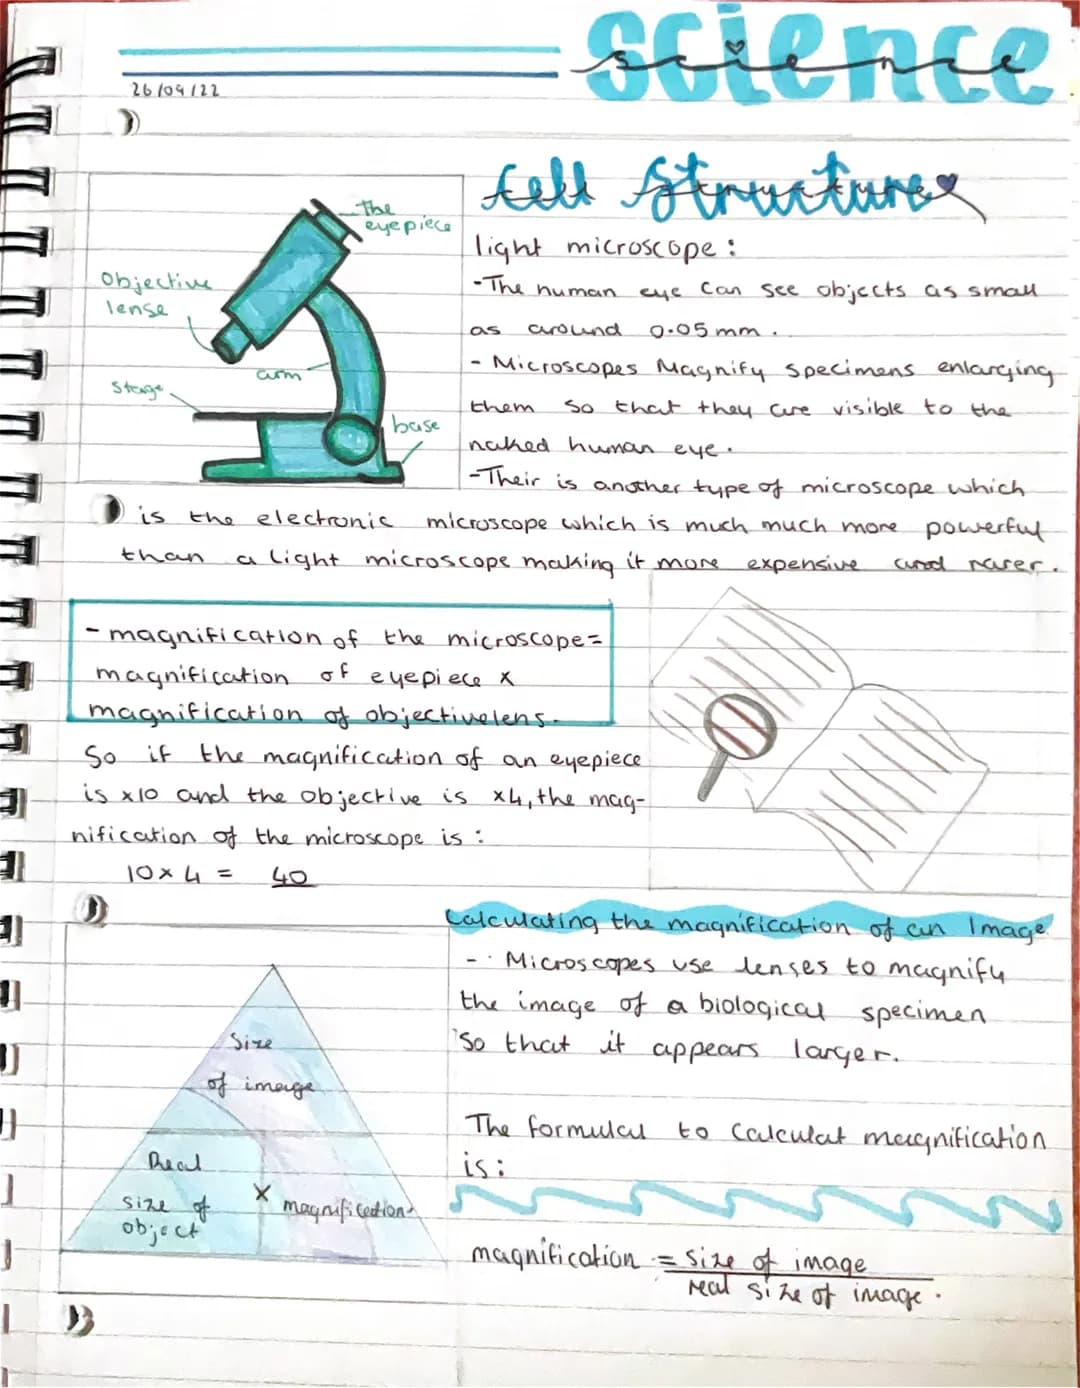 science
science
26/09/22
Cell Structure
The
eyepiece
Objective
lense
arm
Stage
base
light microscope:
-The human eye can see objects as small
as around 0.05mm.
- Microscopes Magnify specimens enlarging
them so that they are visible to the
naked human eye.
-Their is another type of microscope which
is the electronic microscope which is much much more powerful
than a light microscope making it more expensive and rarer.
- magnification of the microscope=
magnification of eyepiece x
magnification of objective lens.
So if the magnification of an eyepiece
is x10 and the objective is x4, the mag-
nification of the microscope is:
10 x 4 = 40
Calculating the magnification of an Image
- · Microscopes use lenses to magnify
the image of a biological specimen
so that it appears larger.
Size
of image
Real
size of
object
x magnification
The formulal to calculat magnification
is:
magnification = size of image
real size of image.